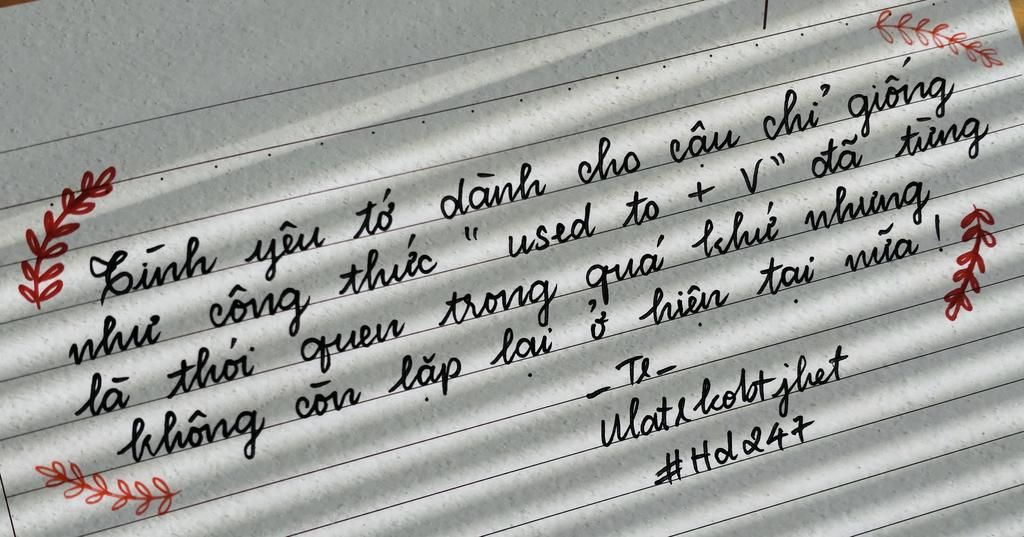 Tình yêu tớ dành cho cậu chỉ giống
như công thức " used to + V" đã từng
là thói quen trong quá khứ nhưng
không còn lặp lại ở hiện tại nữa !
_Tl_
#Hd247